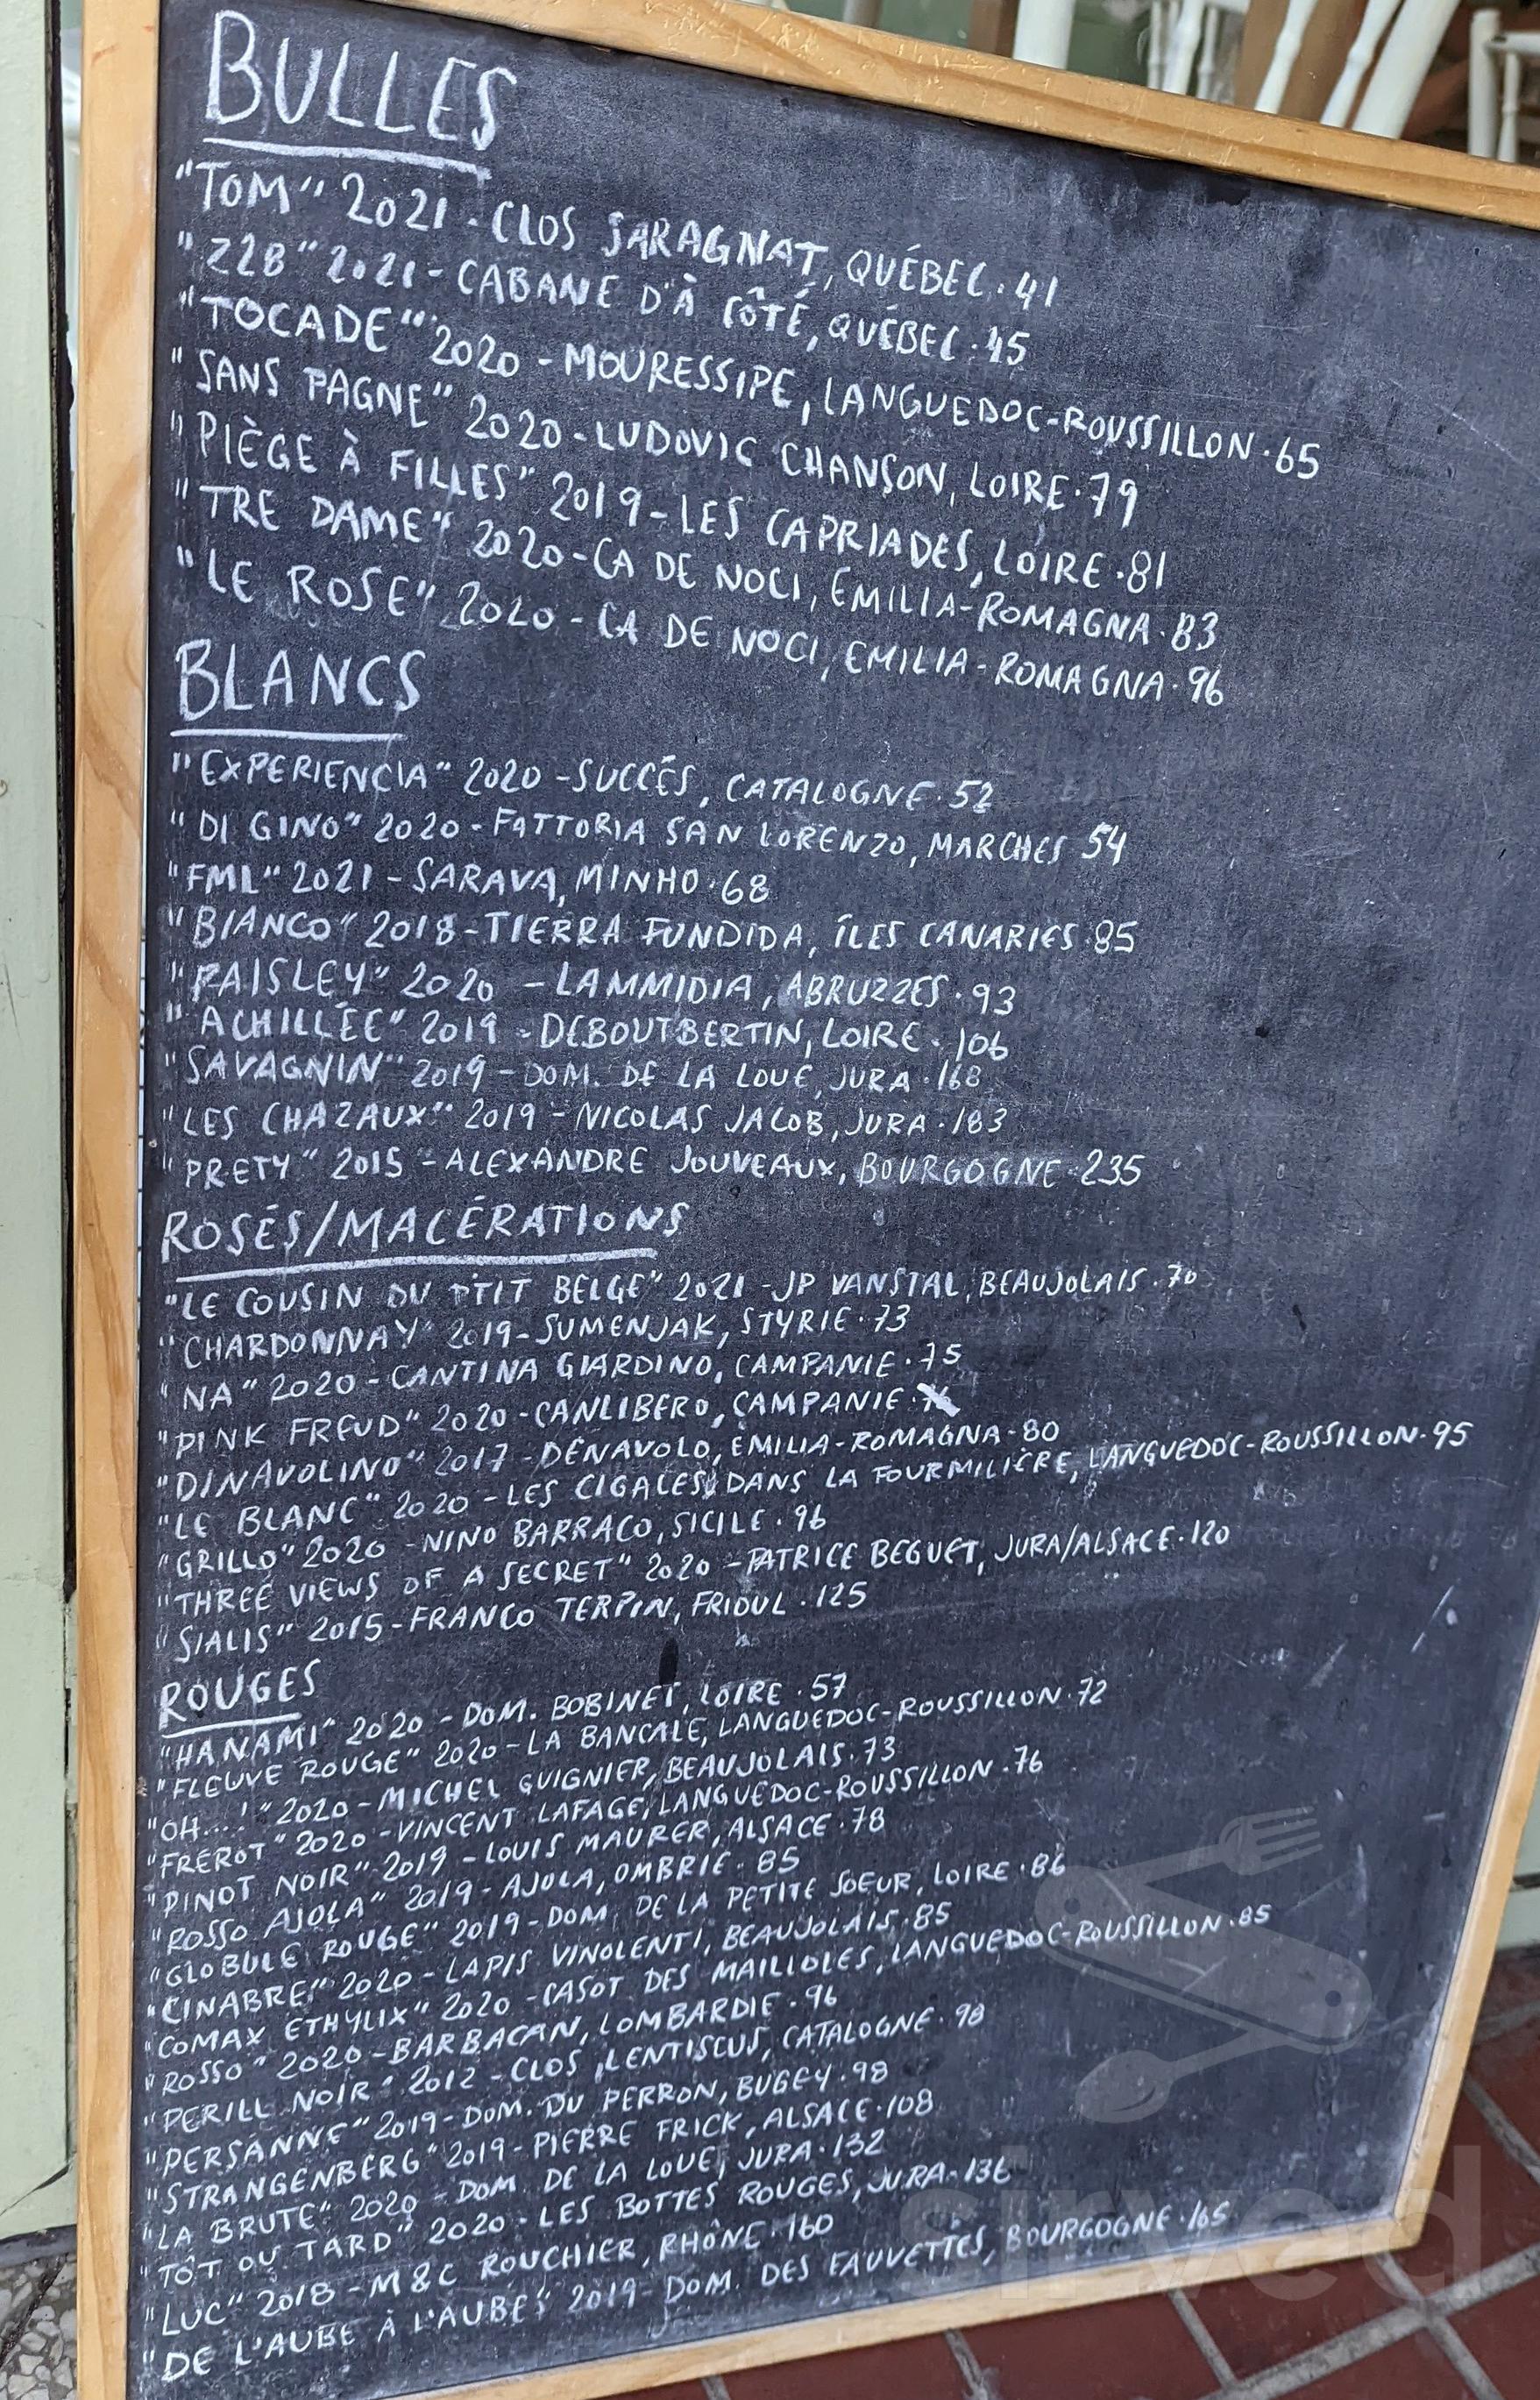 BULLES
"TOM" 2021 - CLOS SARAGNAT, QUÉBEC · 41
"Z2B" 2021 - CABANE D'À CÔTÉ, QUÉBEC · 45
"TOCADE" 2020 - MOURESSIPE, LANGUEDOC-ROUSSILLON · 65
"SANS PAGNE" 2020 - LUDOVIC CHANSON, LOIRE · 79
"PIÈGE À FILLES" 2019 - LES CAPRIADES, LOIRE · 81
"TRE DAME" 2020 - CA DE NOCI, EMILIA-ROMAGNA · 83
"LE ROSE" 2020 - CA DE NOCI, EMILIA-ROMAGNA · 96
BLANCS
"EXPERIENCIA" 2020 - SUCCÉS, CATALOGNE · 52
"DI GINO" 2020 - FATTORIA SAN LORENZO, MARCHES 54
"FML" 2021 - SARAVA, MINHO · 68
"BIANCO" 2018 - TIERRA FUNDIDA, ÎLES CANARIES · 85
"PAISLEY" 2020 - LAMMIDIA, ABRUZZES · 93
"ACHILLÉE" 2019 - DEBOUTBERTIN, LOIRE · 106
"SAVAGNIN" 2019 - DOM. DE LA LOUE, JURA · 168
"LES CHAZAUX" 2019 - NICOLAS JACOB, JURA · 183
"PRETY" 2015 - ALEXANDRE JOUVEAUX, BOURGOGNE · 235
ROSÉS/MACÉRATIONS
"LE COUSIN DU PTIT BELGE" 2021 - JP VANSTAL, BEAUJOLAIS · 70
"CHARDONNAY" 2019 - SUMENJAK, STYRIE · 73
"NA" 2020 - CANTINA GIARDINO, CAMPANIE · 75
"PINK FREUD" 2020 - CANLIBERO, CAMPANIE ·
"DINAVOLINO" 2017 - DENAVOLO, EMILIA-ROMAGNA · 80
"LE BLANC" 2020 - LES CIGALES DANS LA FOURMILIÈRE, LANGUEDOC-ROUSSILLON · 95
"GRILLO" 2020 - NINO BARRACO, SICILE · 96
"THREE VIEWS OF A SECRET" 2020 - PATRICE BEGUET, JURA/ALSACE · 120
"SIALIS" 2015 - FRANCO TERPIN, FRIOUL · 125
ROUGES
"HANAMI" 2020 - DOM. BOBINET, LOIRE · 57
"FLEUVE ROUGE" 2020 - LA BANCALE, LANGUEDOC-ROUSSILLON · 72
"OH...!" 2020 - MICHEL GUIGNIER, BEAUJOLAIS · 73
"FRÉROT" 2020 - VINCENT LAFAGE, LANGUEDOC-ROUSSILLON · 76
"PINOT NOIR" 2019 - LOUIS MAURER, ALSACE · 78
"ROSSO AJOLA" 2019 - AJOLA, OMBRIE · 85
"GLOBULE ROUGE" 2019 - DOM. DE LA PETITE SOEUR, LOIRE · 86
"CINABRE" 2020 - LAPIS VINOLENTI, BEAUJOLAIS · 85
"COMAX ETHYLIX" 2020 - CASOT DES MAILLOLES, LANGUEDOC-ROUSSILLON · 85
"ROSSO" 2020 - BARBACAN, LOMBARDIE · 96
"PERILL NOIR" 2012 - CLOS LENTISCUS, CATALOGNE · 98
"PERSANNE" 2019 - DOM. DU PERRON, BUGEY · 98
"STRANGENBERG" 2019 - PIERRE FRICK, ALSACE · 108
"LA BRUTE" 2020 - DOM. DE LA LOUE, JURA · 132
"TÔT OU TARD" 2020 - LES BOTTES ROUGES, JURA · 136
"LUC" 2018 - M&C ROUCHIER, RHÔNE · 160
"DE L'AUBE À L'AUBE" 2019 - DOM. DES FAUVETTES, BOURGOGNE · 165
sirved